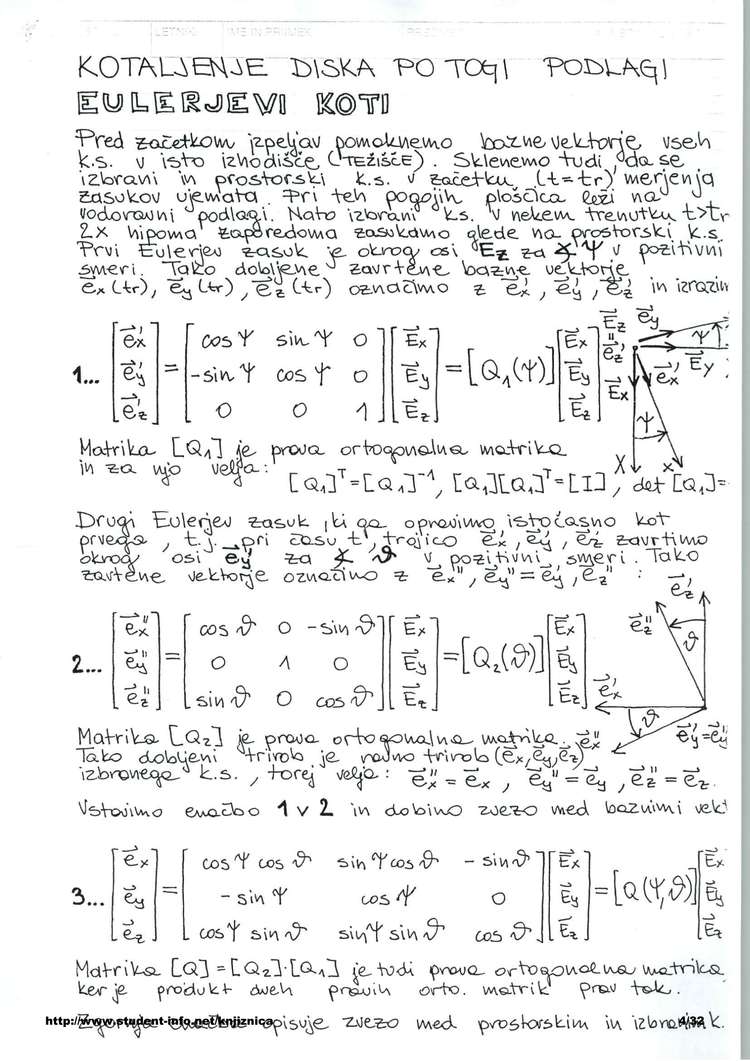 LETNIK IME IN PRIIMEK
KOTALJENJE DISKA PO TOGI PODLAGI
EULERJEVI KOTI
Pred začetkom izpeljav pomaknemo bazne vektorje vseh
k.s. v isto izhodišče (TEŽIŠČE). Sklenemo tudi, da se
izbrani in prostorski k.s. v začetku (t=tr) merjenja
zasukov ujemata. Pri teh pogojih ploščica leži na
vodoravni podlagi. Nato izbrani k.s. v nekem trenutku t>tr
2x hipoma zaporedoma zasukamo glede na prostorski k.s.
Prvi Eulerjev zasuk je okrog osi Ez za ∢ Ψ v pozitivni
smeri. Tako dobljene zavrtene bazne vektorje
e⃗x(tr), e⃗y(tr), e⃗z(tr) označimo z e⃗x', e⃗y', e⃗z' in izrazim
1... [e⃗x' e⃗y' e⃗z'] = [cos Ψ sin Ψ 0; -sin Ψ cos Ψ 0; 0 0 1] [E⃗x E⃗y E⃗z] = [Q1(Ψ)] [E⃗x E⃗y E⃗z]
E⃗z e⃗y e⃗z' Ψ E⃗y E⃗x e⃗x' Ψ X x
Matrika [Q1] je prava ortogonalna matrika
in za njo velja: [Q1]ᵀ=[Q1]⁻¹, [Q1][Q1]ᵀ=[I], det [Q1]=
Drugi Eulerjev zasuk, ki ga opravimo istočasno kot
prvega, t.j. pri času t, trojico e⃗x', e⃗y', e⃗z' zavrtimo
okrog osi e⃗y' za ∢ ϑ v pozitivni smeri. Tako
zavtene vektorje označimo z e⃗x'', e⃗y''=e⃗y', e⃗z'' :
2... [e⃗x'' e⃗y'' e⃗z''] = [cos ϑ 0 -sin ϑ; 0 1 0; sin ϑ 0 cos ϑ] [E⃗x E⃗y E⃗z] = [Q2(ϑ)] [E⃗x E⃗y E⃗z]
e⃗z' e⃗z'' ϑ e⃗x' ϑ e⃗x'' e⃗y'=e⃗y
Matrika [Q2] je prava ortogonalna matrika.
Tako dobljeni trirob je ravno trirob (e⃗x, e⃗y, e⃗z)
izbranega k.s., torej velja: e⃗x''=e⃗x, e⃗y''=e⃗y, e⃗z''=e⃗z.
Vstavimo enačbo 1 v 2 in dobimo zvezo med baznimi vekt
3... [e⃗x e⃗y e⃗z] = [cos Ψ cos ϑ sin Ψ cos ϑ -sin ϑ; -sin Ψ cos Ψ 0; cos Ψ sin ϑ sin Ψ sin ϑ cos ϑ] [E⃗x E⃗y E⃗z] = [Q(Ψ,ϑ)] [E⃗x E⃗y E⃗z
Matrika [Q]=[Q2]·[Q1] je tudi prava ortogonalna matrika
ker je produkt dveh pravih orto. matrik prav tak.
opisuje zvezo med prostorskim in izbranim k.
http://www.student-info.net/knjiznica 4/32